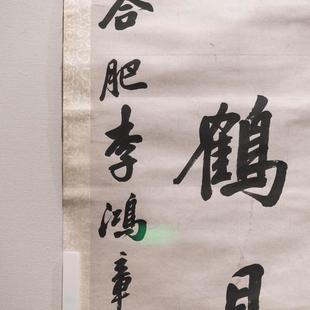 鶴
合肥李鴻章